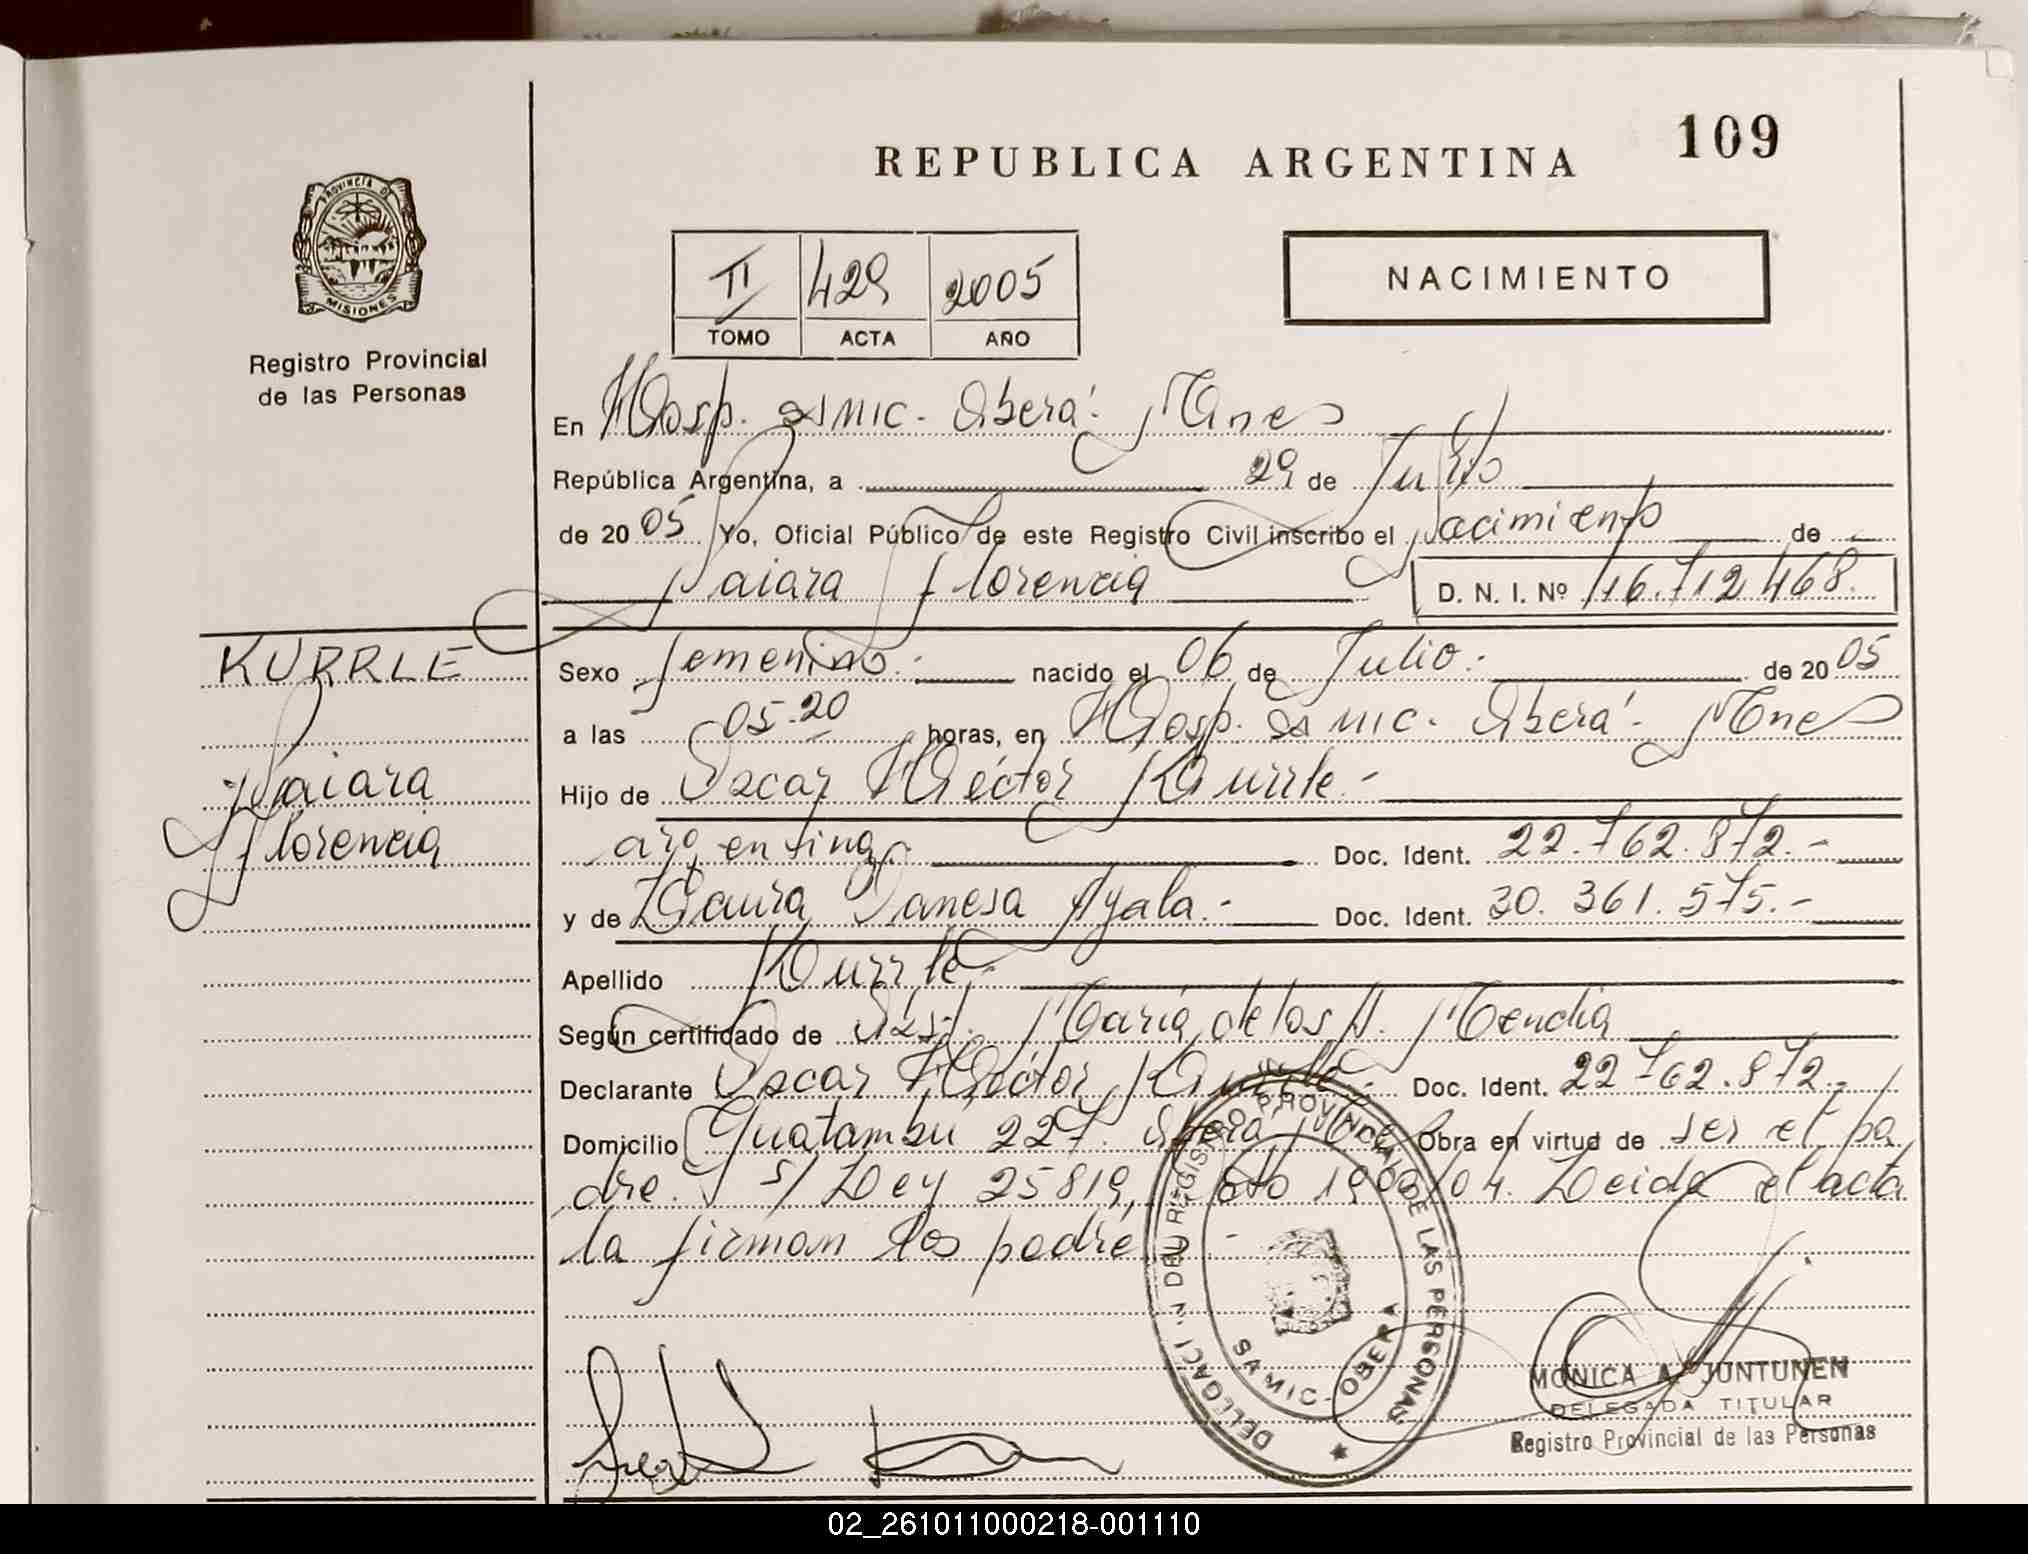 109
REPUBLICA ARGENTINA
PROVINCIA DE
MISIONES
Registro Provincial
de las Personas
II 429 2005
TOMO ACTA AÑO
NACIMIENTO
En Hosp. SAMIC. Oberá. Mnes
República Argentina, a 29 de Julio
de 2005 Yo, Oficial Público de este Registro Civil inscribo el Nacimiento de
Naiara Florencia D. N. I. Nº
KURRLE
Naiara
Florencia
Sexo femenino.- nacido el 06 de Julio.- de 2005
a las 05.20 horas, en Hosp. SAMIC. Oberá. Mnes
Hijo de Oscar Héctor Kurrle.-
argentina.- Doc. Ident. 22.762.872.-
y de Laura Vanesa Ayala.- Doc. Ident. 30.361.575.-
Apellido Kurrle.-
Según certificado de Obst. María de los A. Mendia
Declarante Oscar Héctor Kurrle.- Doc. Ident. 22.762.872.-
Domicilio Guatambu 227. Oberá, Mnes Obra en virtud de ser el pa
dre. s/ Ley 25819, Dto 1900/04. Leida el acta
la firman los padre
DELEGACION DEL REGISTRO PROVINCIAL DE LAS PERSONAS
SAMIC - OBERA
MONICA A. JUNTUNEN
DELEGADA TITULAR
Registro Provincial de las Personas
02_261011000218-001110